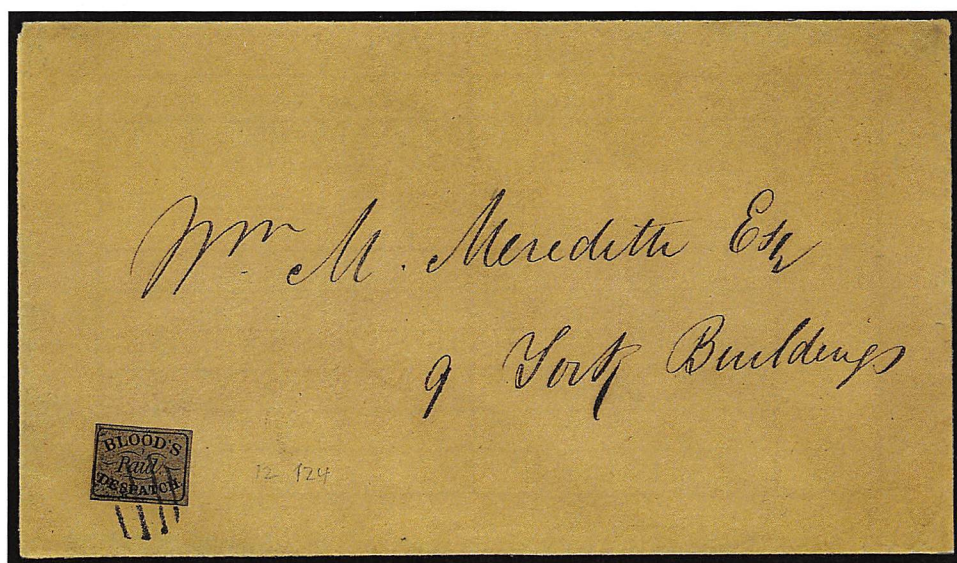 Wm M. Meredith Esq
9 York Buildings
BLOOD'S
Paid
DESPATCH
12 124